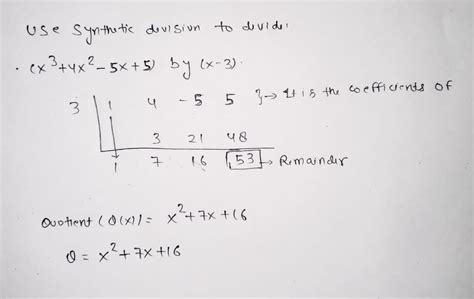 Use Synthetic division to divide:
. (x³+4x²-5x+5) by (x-3).
3 | 1 4 -5 5 }→ It is the coefficients of
3 21 48
1 7 16 53 → Remainder
Quotient (Q(x)) = x²+7x+16
Q = x²+7x+16